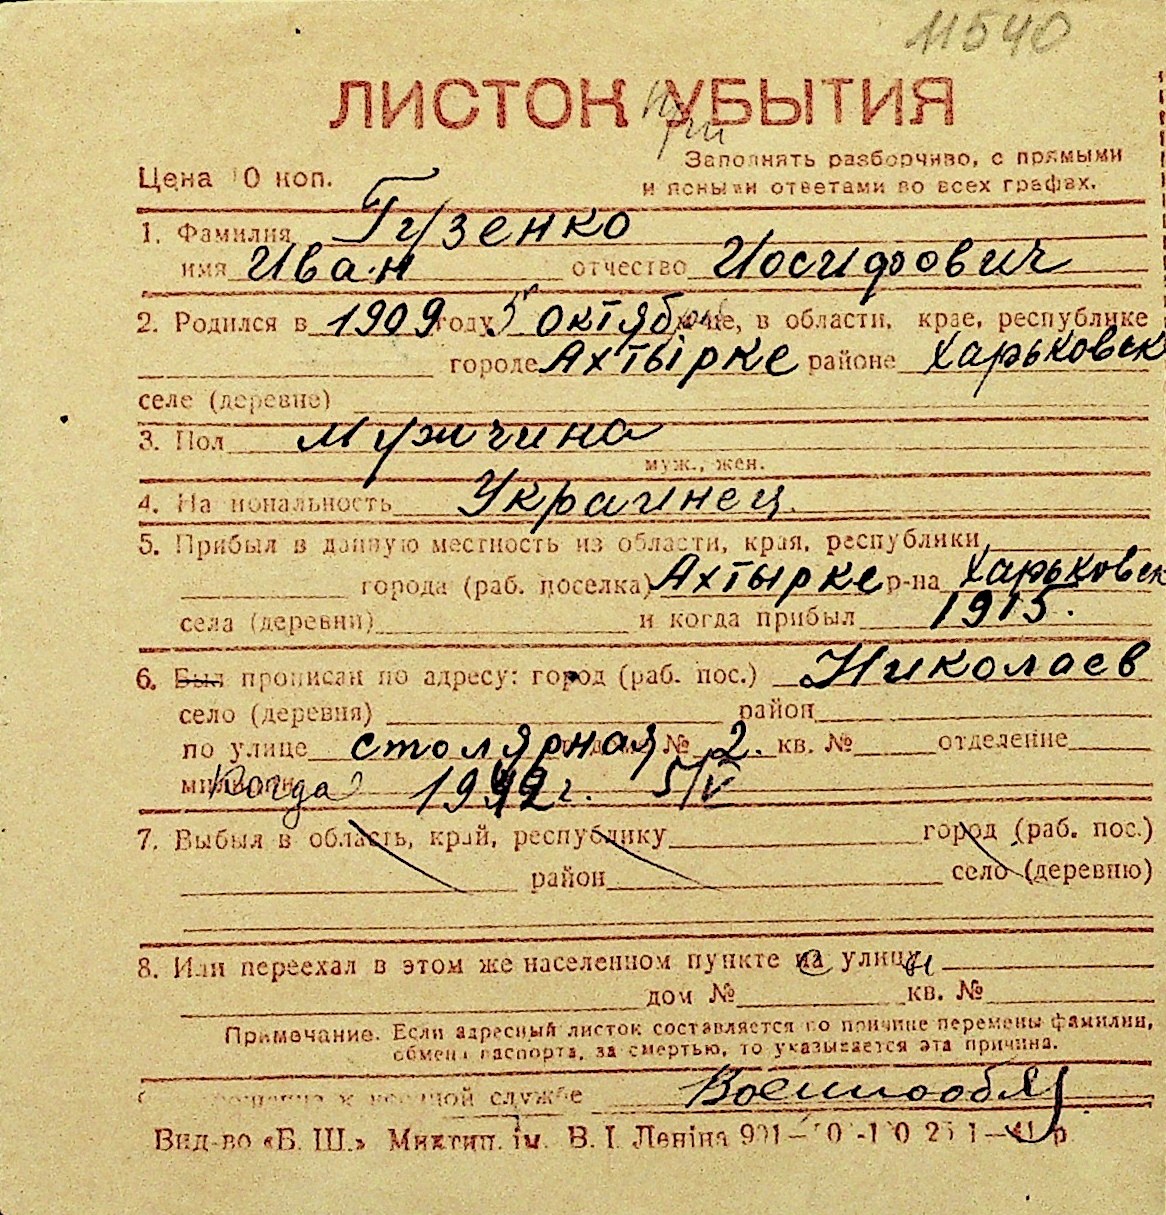 11540
ЛИСТОК УБЫТИЯ
Цена 10 коп.
Заполнять разборчиво, с прямыми
и ясными ответами во всех графах.
1. Фамилия Гузенко
имя Иван отчество Иосифович
2. Родился в 1909 году 5 октября, в области, крае, республике
городе Ахтырке районе Харьковск
селе (деревне)
3. Пол Мужчина
муж., жен.
4. Национальность Украинец.
5. Прибыл в данную местность из области, края, республики
города (раб. поселка) Ахтырке р-на Харьковск
села (деревни) и когда прибыл 1915.
6. Был прописан по адресу: город (раб. пос.) Николаев
село (деревня) район
по улице столярная № 2. кв. № отделение
милиции Когда 1942 г. 5/V
7. Выбыл в область, край, республику город (раб. пос.)
район село (деревню)
8. Или переехал в этом же населенном пункте на улицу
дом № кв. №
Примечание. Если адресный листок составляется по причине перемены фамилии,
обмена паспорта, за смертью, то указывается эта причина.
к военной службе Военнообяз
Вид-во «Б. Ш.» Миктип. ім. В. І. Леніна